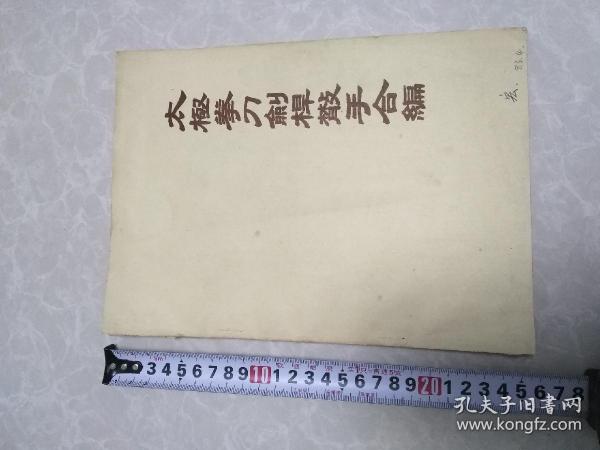 太極拳刀劍桿散手合編
宏. 83.4.
3 4 5 6 7 8 9 10 1 2 3 4 5 6 7 8 9 20 1 2 3 4 5 6 7 8
孔夫子旧書网
www.kongfz.com